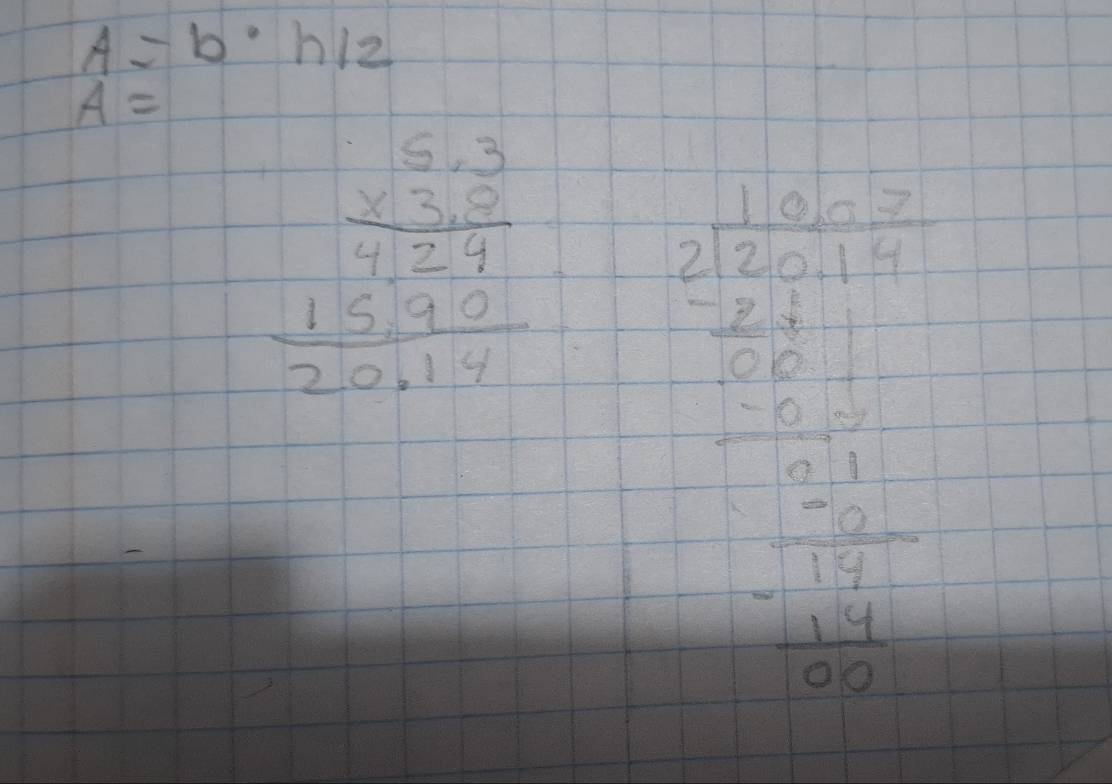 A = b · h/2
A =
5.3
x 3.8
4.24
15.90
20.14
10.07
2 20.14
- 2
00
- 0
01
- 0
14
- 14
00